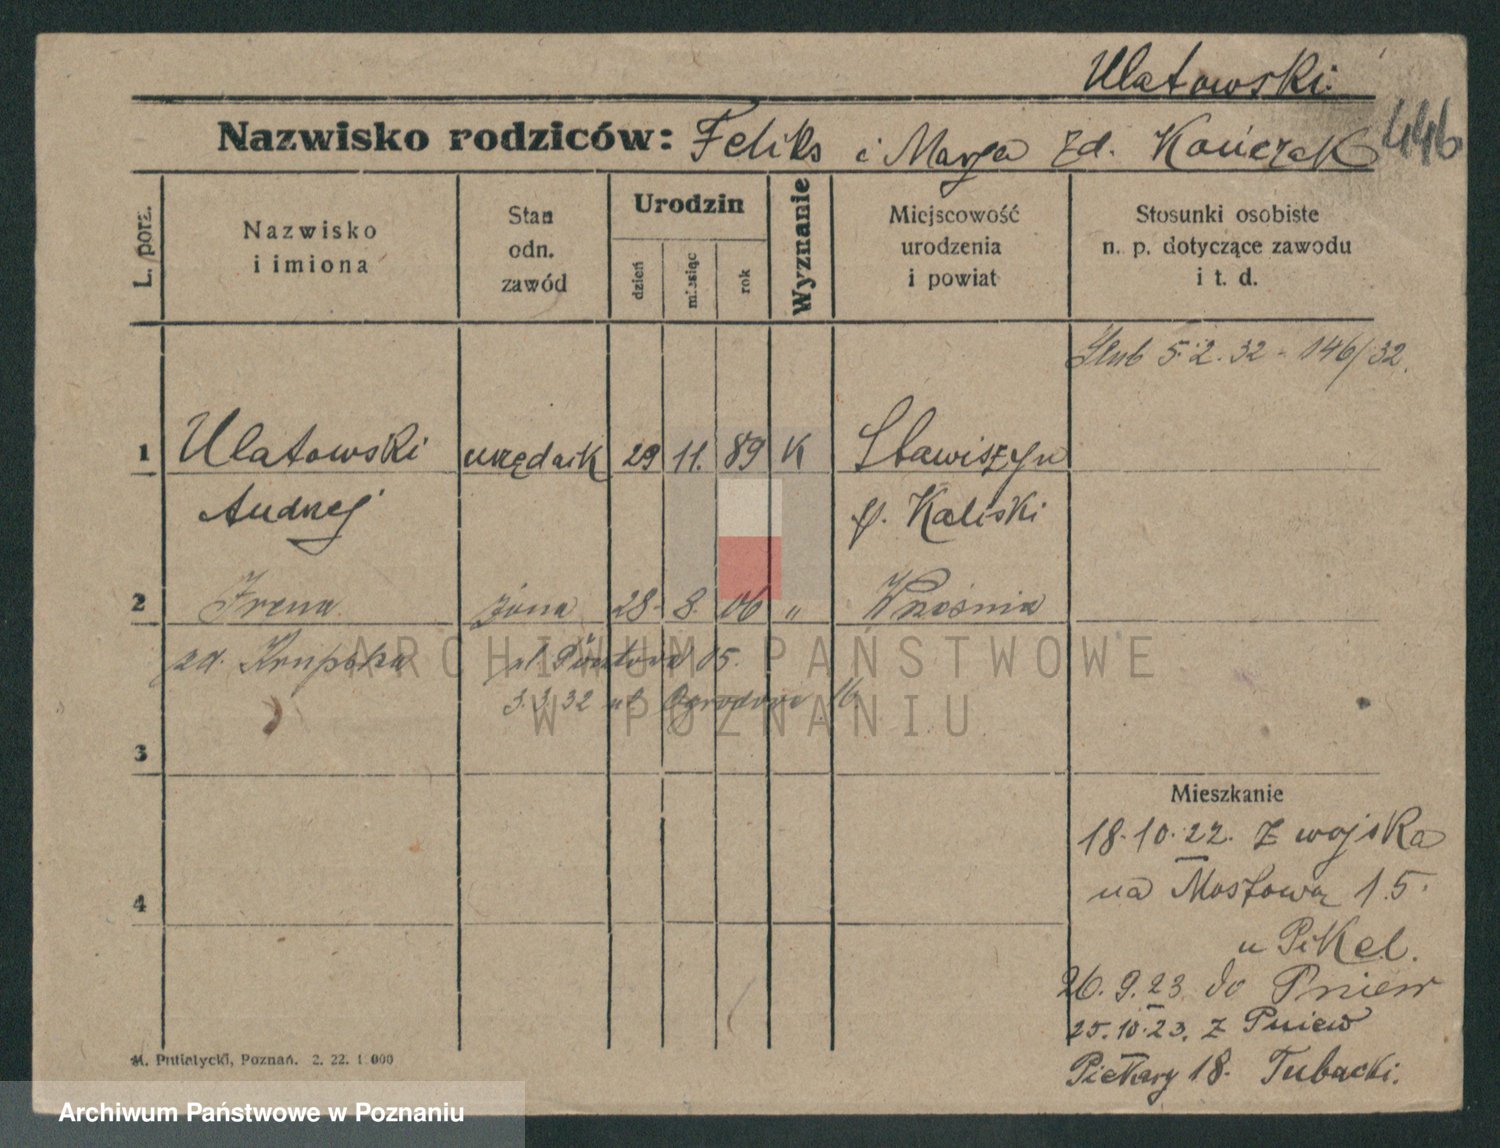 Ulatowski.
446
Nazwisko rodziców: Feliks i Marja zd. Kończak
L. porz.
Nazwisko
i imiona
Stan
odn.
zawód
Urodzin
dzień
miesiąc
rok
Wyznanie
Miejscowość
urodzenia
i powiat
Stosunki osobiste
n. p. dotyczące zawodu
i t. d.
Ślub 5.2.32 - 146/32.
1 Ulatowski urzędnik 29 11. 89 K Stawiszyn
Andrzej p. Kaliski
2 Irena żona 28. 8. 06 " Września
zd. Krupska ul 15.
3.3.32 ul Ogrodowa 16
3
Mieszkanie
18.10.22. z wojska
4
na Mostową 15.
u Pikel.
26.9.23 do Pniew
25.10.23. z Pniew
Piekary 18. Tubacki.
M. Putiatycki, Poznań. 2. 22. 1 000
ARCHIWUM PAŃSTWOWE
W POZNANIU
Archiwum Państwowe w Poznaniu